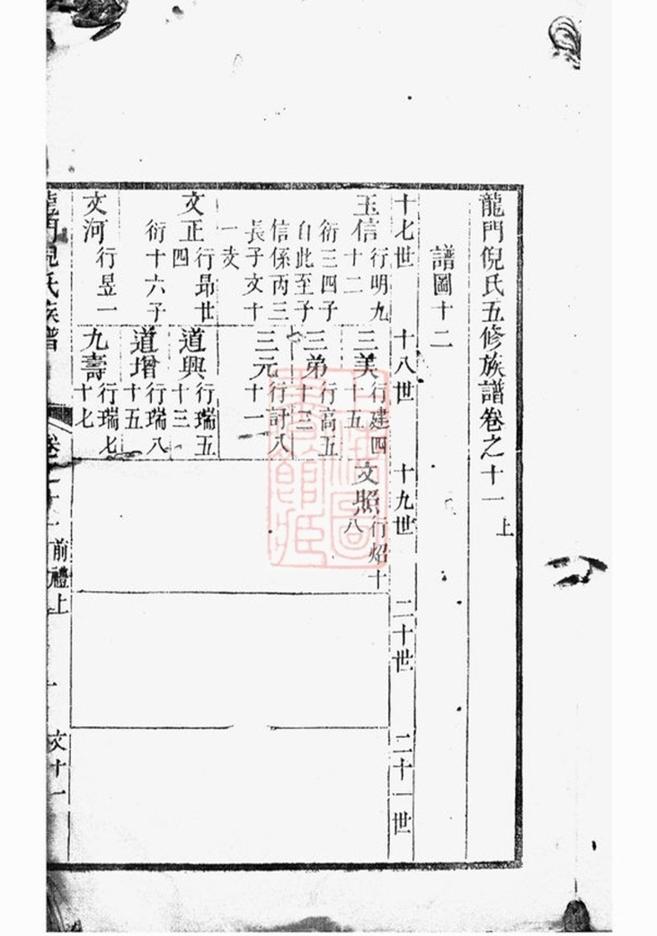 龍門倪氏五修族譜卷之十一上
譜圖十二
十七世
十八世
十九世
二十世
二十一世
玉信行明九十二
衍三四子
自此至子
信係丙三
長子文十
一支
三美行建四十五
文照行炤十八
三弟行高五十三
三元行計八十一
文正行昂廿四
衍十六子
道興行瑞五十三
道增行瑞八十五
文河行昱一
九壽行瑞七十七
龍門倪氏族譜
卷之十一前禮上
文十一